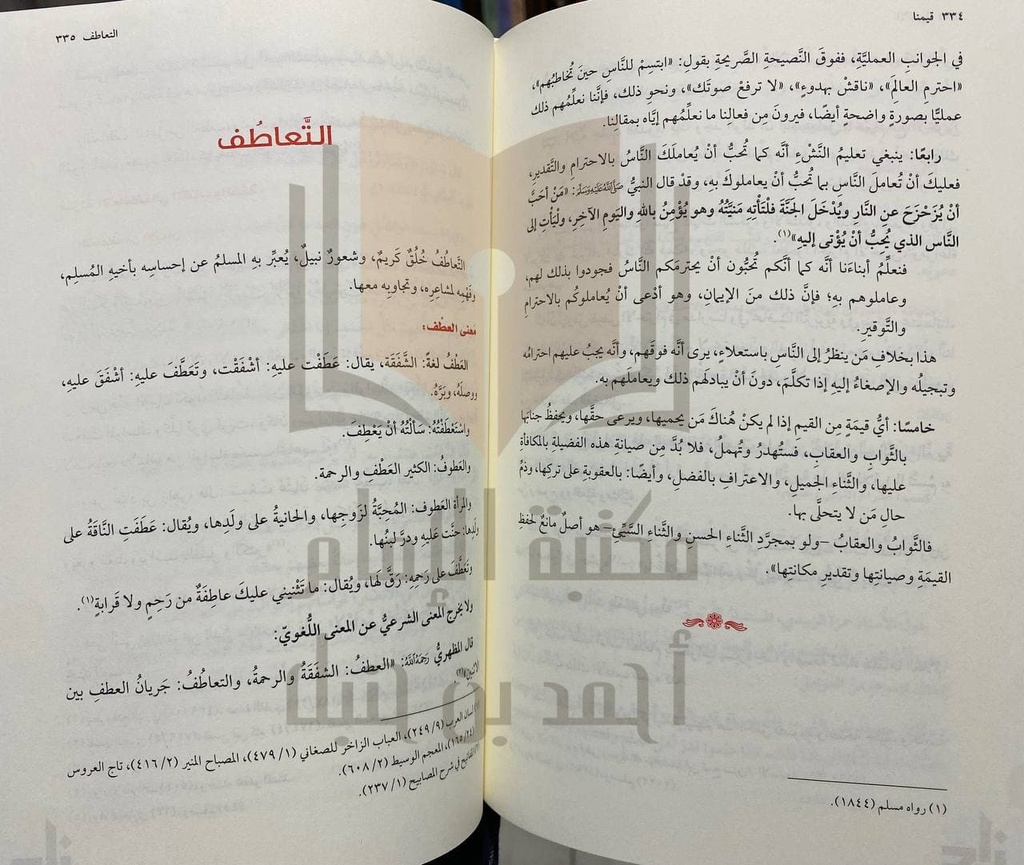 ٣٣٤ قيمنا
في الجوانبِ العمليَّةِ، ففوقَ النَّصيحةِ الصَّريحةِ بقولِ: «ابتسِمْ للنَّاسِ حينَ تُخاطبُهم»،
«احترمِ العالِمَ»، «ناقشْ بهدوءٍ»، «لا ترفعْ صوتَك»، ونحوِ ذلك، فإنَّنا نعلِّمُهم ذلك
عمليًّا بصورةٍ واضحةٍ أيضًا، فيرونَ مِن فعالِنا ما نعلِّمُهم إيَّاه بمقالِنا.
رابعًا: ينبغي تعليمُ النَّشْءِ أنَّه كما تُحبُّ أنْ يُعاملَكَ النَّاسُ بالاحترامِ والتَّقديرِ،
فعليكَ أنْ تُعاملَ النَّاس بما تُحبُّ أنْ يعاملوكَ بهِ، وقدْ قال النبيُّ ﷺ: «مَنْ أحَبَّ
أنْ يُزَحْزَحَ عنِ النارِ ويُدْخَلَ الجَنَّةَ فلْتَأْتِهِ مَنِيَّتُهُ وهو يُؤْمِنُ باللهِ واليَومِ الآخِرِ، ولْيَأْتِ إلى
النَّاس الذي يُحِبُّ أنْ يُؤْتى إليهِ»(١).
فنعلِّمُ أبناءَنا أنَّه كما أنَّكم تُحبُّون أنْ يحترمَكم النَّاسُ فجودوا بذلك لهم،
وعاملوهم بهِ؛ فإنَّ ذلك منَ الإيمانِ، وهو أدْعى أنْ يُعاملوكُم بالاحترامِ
والتَّوقيرِ.
هذا بخلافِ مَن ينظرُ إلى النَّاسِ باستعلاءٍ، يرى أنَّه فوقَهم، وأنَّه يجبُ عليهم احترامُه
وتبجيلُه والإصغاءُ إليهِ إذا تكلَّمَ، دونَ أنْ يبادلَهم ذلك ويعاملَهم به.
خامسًا: أيُّ قيمَةٍ مِن القيمِ إذا لم يكنْ هُناكَ مَن يحميها، ويرعى حقَّها، ويحفظُ جنابَها
بالثَّوابِ والعقابِ، فستُهدرُ وتُهملُ، فلا بُدَّ مِن صيانةِ هذه الفضيلةِ بالمكافأةِ
عليها، والثَّناءِ الجميلِ، والاعترافِ بالفضلِ، وأيضًا: بالعقوبةِ على تركِها، وذمِّ
حالِ مَن لا يتحلَّى بها.
فالثَّوابُ والعقابُ -ولو بمجرَّدِ الثَّناءِ الحسنِ والثَّناءِ السَّيِّئِ- هو أصلٌ مانعٌ لحفظِ
القيمَةِ وصيانتِها وتقديرِ مكانتِها».
(١) رواه مسلم (١٨٤٤).
التعاطف ٣٣٥
التَّعاطُف
التَّعاطُفُ خُلُقٌ كَريمٌ، وشعورٌ نبيلٌ، يُعبِّر بهِ المسلمُ عن إحساسِه بأخيهِ المُسلِمِ،
وفَهْمِه لمشاعرِه، وتجاوبِه معها.
مَعنى العطْف:
العَطْفُ لغةً: الشَّفَقَة، يقال: عَطَفْت عليهِ: أشْفَقْت، وتَعَطَّفَ عليهِ: أشْفَقَ عليهِ،
ووصلَهُ، وبَرَّهُ.
واسْتَعْطَفْتُهُ: سَأَلْتُهُ أنْ يَعْطِفَ.
والعَطوفُ: الكثير العَطْفِ والرحمة.
والمرأة العَطوف: المُحِبَّةُ لزَوجِها، والحانيةُ على ولَدِها، ويُقال: عَطَفَتِ النَّاقَةُ على
ولَدِها: حنَّت عَليهِ ودرَّ لبنُها.
وتَعَطَّفَ على رَحِمِهِ: رَقَّ لَها، ويُقال: ما تَثْنيني عليكَ عاطِفَةٌ من رَحِمٍ ولا قَرابةٍ(١).
ولا يخرج المعنى الشرعيُّ عن المعنى اللُّغويِّ:
قال المظهريُّ رَحِمَهُ اللَّهُ: «العطفُ: الشفَقَةُ والرحمةُ، والتعاطُفُ: جَريانُ العطفِ بين
(١) لسان العرب (٩/ ٢٤٩)، العباب الزاخر للصغاني (١/ ٤٧٩)، المصباح المنير (٢/ ٤١٦)، تاج العروس
(٢٤/ ١٦٥)، المعجم الوسيط (٢/ ٦٠٨).
(٢) المفاتيح في شرح المصابيح (١/ ٢٣٧).
مكتبة الإمام
أحمد بن حنبل